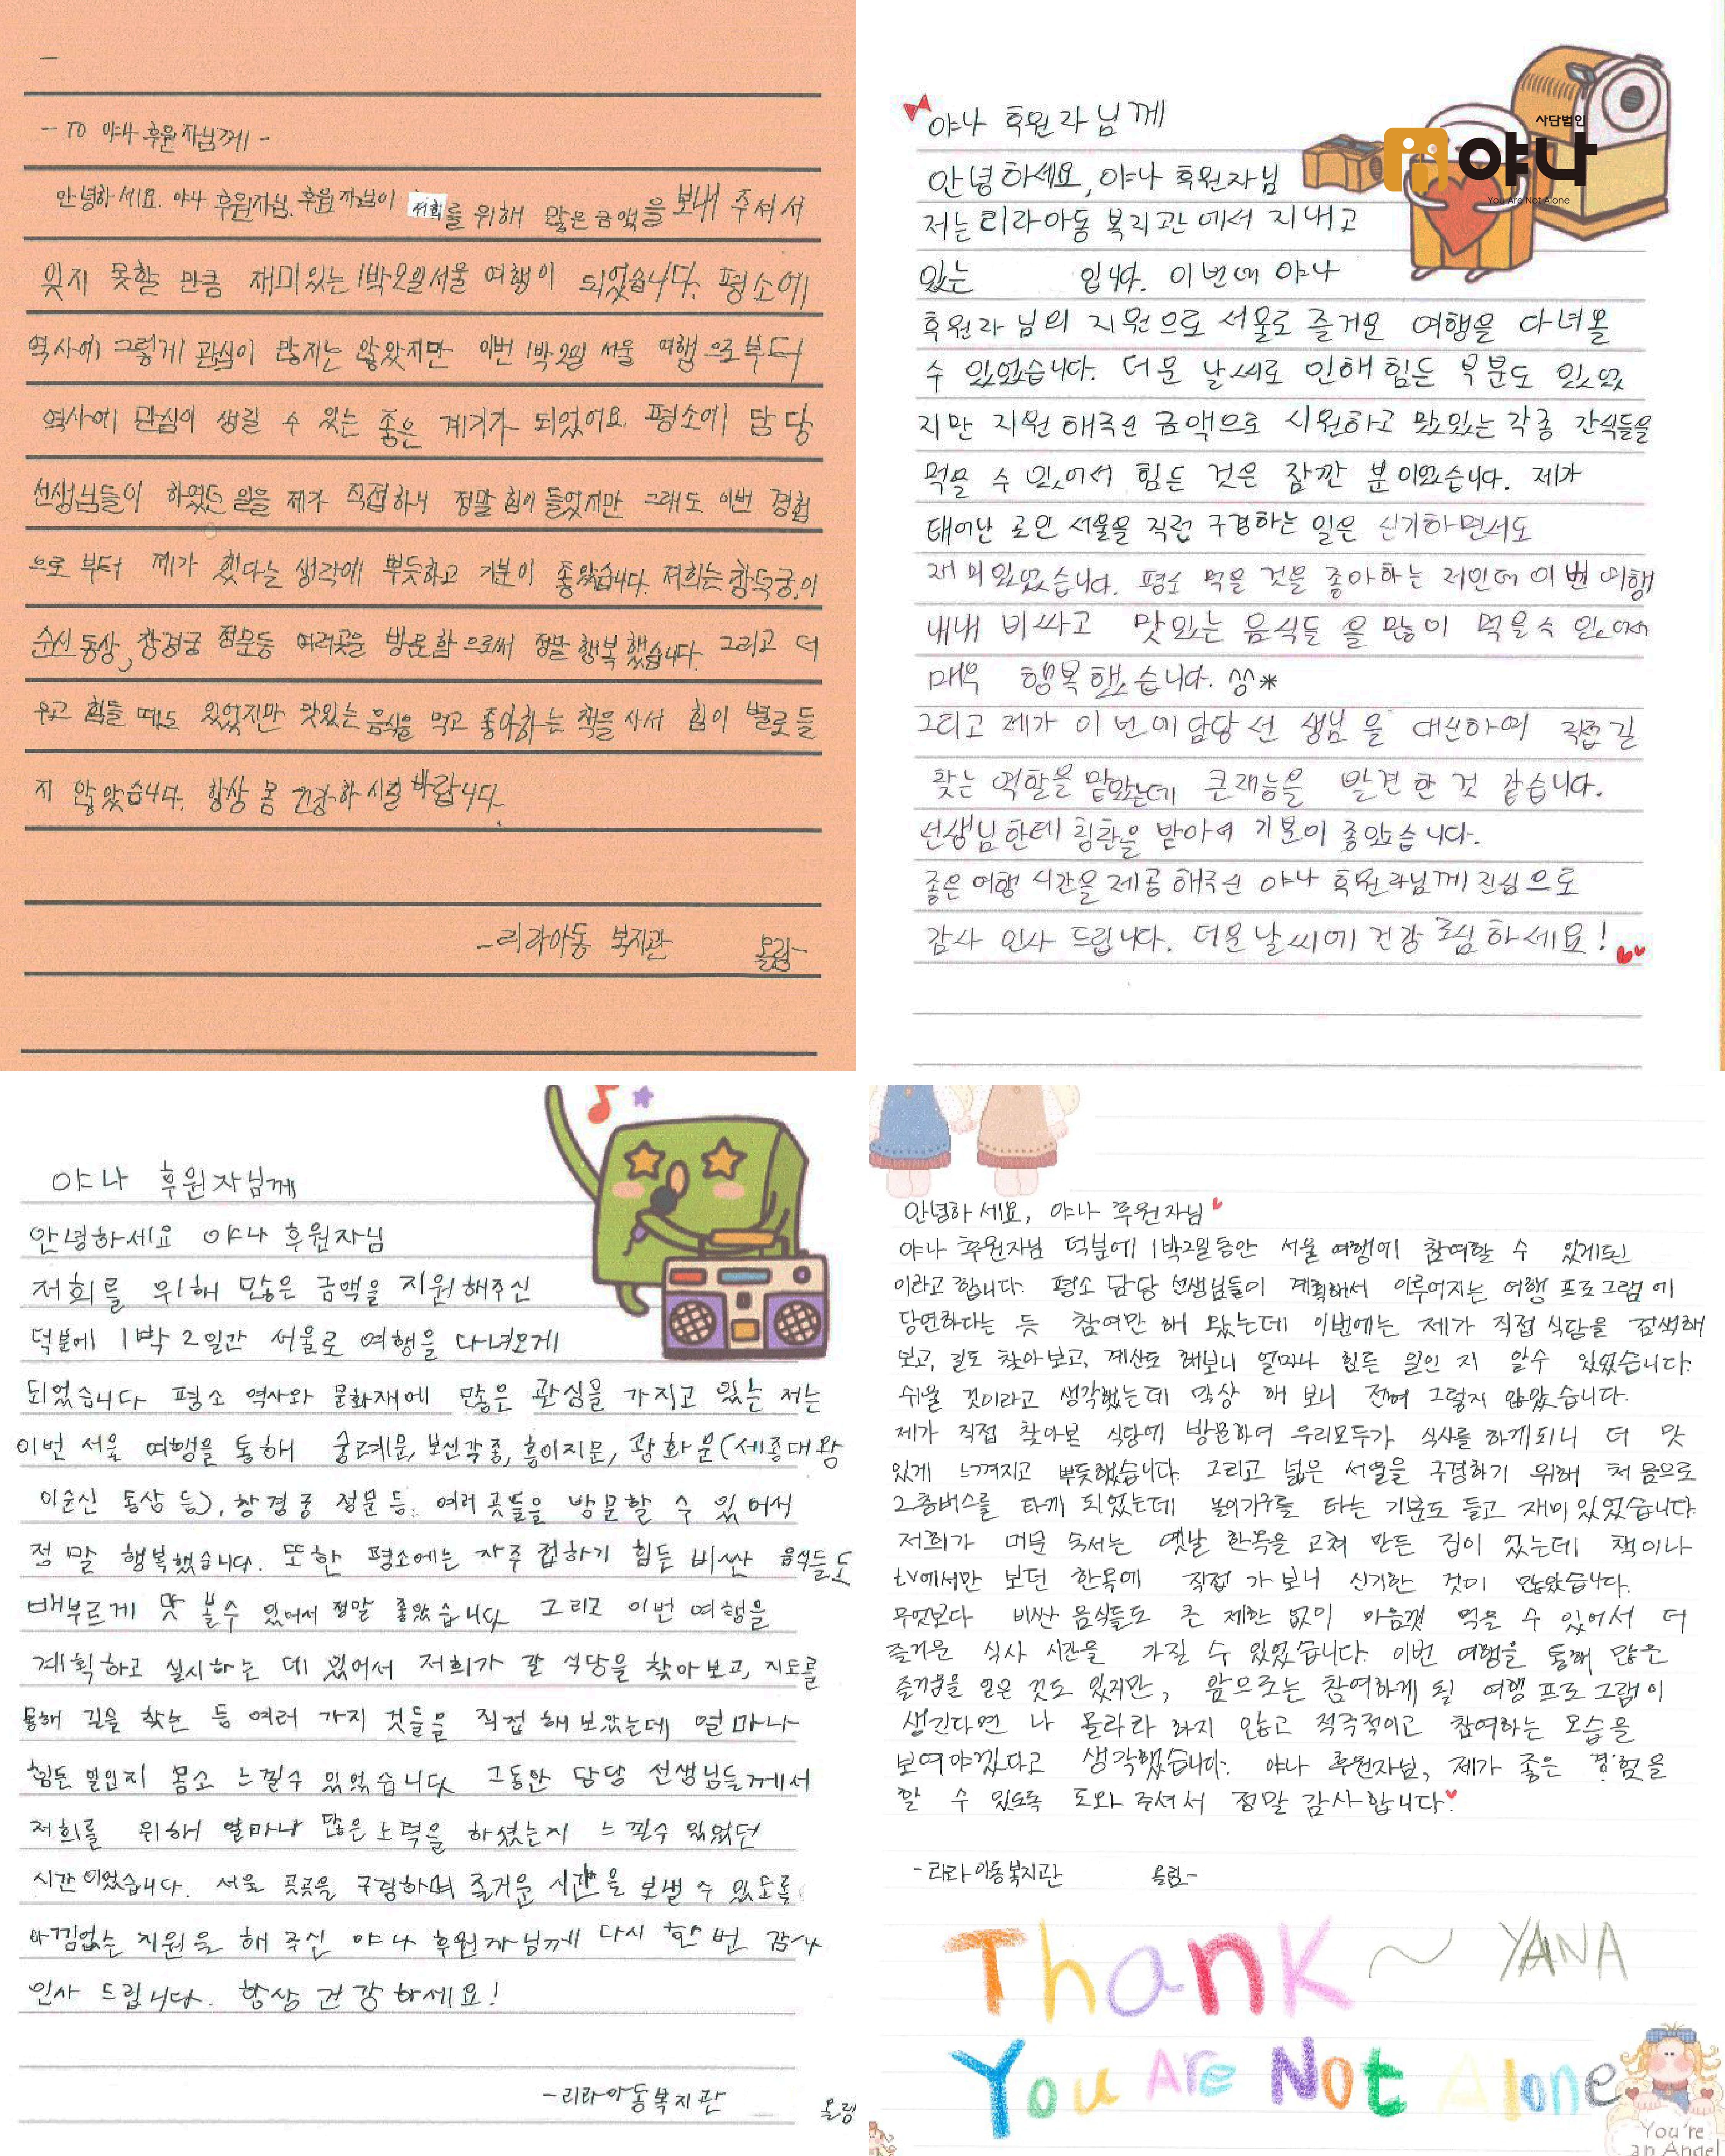 - TO 야나 후원자님께 -
안녕하세요. 야나 후원자님. 후원자님이 저희를 위해 많은 금액을 보내 주셔서
잊지 못할 만큼 재미있는 1박2일 서울 여행이 되었습니다. 평소에
역사에 그렇게 관심이 많지는 않았지만 이번 1박2일 서울 여행으로부터
역사에 관심이 생길 수 있는 좋은 계기가 되었어요. 평소에 담당
선생님들이 하였던 일을 제가 직접하니 정말 힘이 들었지만 그래도 이번 경험
으로 부터 제가 했다는 생각에 뿌듯하고 기분이 좋았습니다. 저희는 창덕궁, 이
순신 동상, 창경궁 정문등 여러곳을 방문함으로써 정말 행복했습니다. 그리고 더
우고 힘들 때도 있었지만 맛있는 음식을 먹고 좋아하는 책을 사서 힘이 별로 들
지 않았습니다. 항상 몸 건강하시길 바랍니다.
-리라아동 복지관 올림-
야나 후원자님께
사단법인
야나
You Are Not Alone
안녕하세요, 야나 후원자님
저는 리라아동 복지관에서 지내고
있는 입니다. 이번에 야나
후원자님의 지원으로 서울로 즐거운 여행을 다녀올
수 있었습니다. 더운 날씨로 인해 힘든 부분도 있었
지만 지원해주신 금액으로 시원하고 맛있는 각종 간식들을
먹을 수 있어서 힘든 것은 잠깐 뿐이었습니다. 제가
태어난 곳인 서울을 직접 구경하는 일은 신기하면서도
재미있었습니다. 평소 먹을 것을 좋아하는 저인데 이번 여행
내내 비싸고 맛있는 음식들을 많이 먹을 수 있어서
매우 행복했습니다. ^^*
그리고 제가 이번에 담당 선생님을 대신하여 직접 길
찾는 역할을 맡았는데 큰 재능을 발견한 것 같습니다.
선생님한테 칭찬을 받아서 기분이 좋았습니다.
좋은 여행 시간을 제공해주신 야나 후원자님께 진심으로
감사 인사 드립니다. 더운 날씨에 건강 조심하세요!
야나 후원자님께
안녕하세요 야나 후원자님
저희를 위해 많은 금액을 지원해주신
덕분에 1박 2일간 서울로 여행을 다녀오게
되었습니다 평소 역사와 문화재에 많은 관심을 가지고 있는 저는
이번 서울 여행을 통해 숭례문, 보신각종, 흥인지문, 광화문(세종대왕
이순신 동상 등), 창경궁 정문 등 여러 곳들을 방문할 수 있어서
정말 행복했습니다. 또한 평소에는 자주 접하기 힘든 비싼 음식들도
배부르게 맛 볼수 있어서 정말 좋았습니다 그리고 이번 여행을
계획하고 실시하는 데 있어서 저희가 갈 식당을 찾아보고, 지도를
통해 길을 찾는 등 여러 가지 것들을 직접 해보았는데 얼마나
힘든 일인지 몸소 느낄수 있었습니다 그동안 담당 선생님들께서
저희를 위해 얼마나 많은 노력을 하셨는지 느낄수 있었던
시간이었습니다. 서울 곳곳을 구경하며 즐거운 시간을 보낼 수 있도록
아낌없는 지원을 해 주신 야나 후원자님께 다시 한 번 감사
인사 드립니다. 항상 건강하세요!
-리라아동복지관 올림
안녕하세요, 야나 후원자님
야나 후원자님 덕분에 1박2일동안 서울 여행에 참여할 수 있게된
이라고 합니다. 평소 담당 선생님들이 계획해서 이루어지는 여행 프로그램에
당연하다는 듯 참여만 해 왔는데 이번에는 제가 직접 식당을 검색해
보고, 길도 찾아보고, 계산도 해보니 얼마나 힘든 일인 지 알수 있었습니다.
쉬울 것이라고 생각했는데 막상 해 보니 전혀 그렇지 않았습니다.
제가 직접 찾아본 식당에 방문하여 우리모두가 식사를 하게되니 더 맛
있게 느껴지고 뿌듯했습니다. 그리고 넓은 서울을 구경하기 위해 처음으로
2층버스를 타게 되었는데 놀이기구를 타는 기분도 들고 재미있었습니다.
저희가 머문 숙서는 옛날 한옥을 고쳐 만든 집이 었는데 책이나
tv에서만 보던 한옥에 직접 가보니 신기한 것이 많았습니다.
무엇보다 비싼 음식들도 큰 제한 없이 마음껏 먹을 수 있어서 더
즐거운 식사 시간을 가질 수 있었습니다. 이번 여행을 통해 많은
즐거움을 얻은 것도 있지만, 앞으로는 참여하게 될 여행 프로그램이
생긴다면 나 몰라라 하지 않고 적극적이고 참여하는 모습을
보여야겠다고 생각했습니다. 야나 후원자님, 제가 좋은 경험을
할 수 있도록 도와 주셔서 정말 감사합니다.
-리라아동복지관 올림-
Thank ~ YANA
You Are Not Alone
You're
an Angel